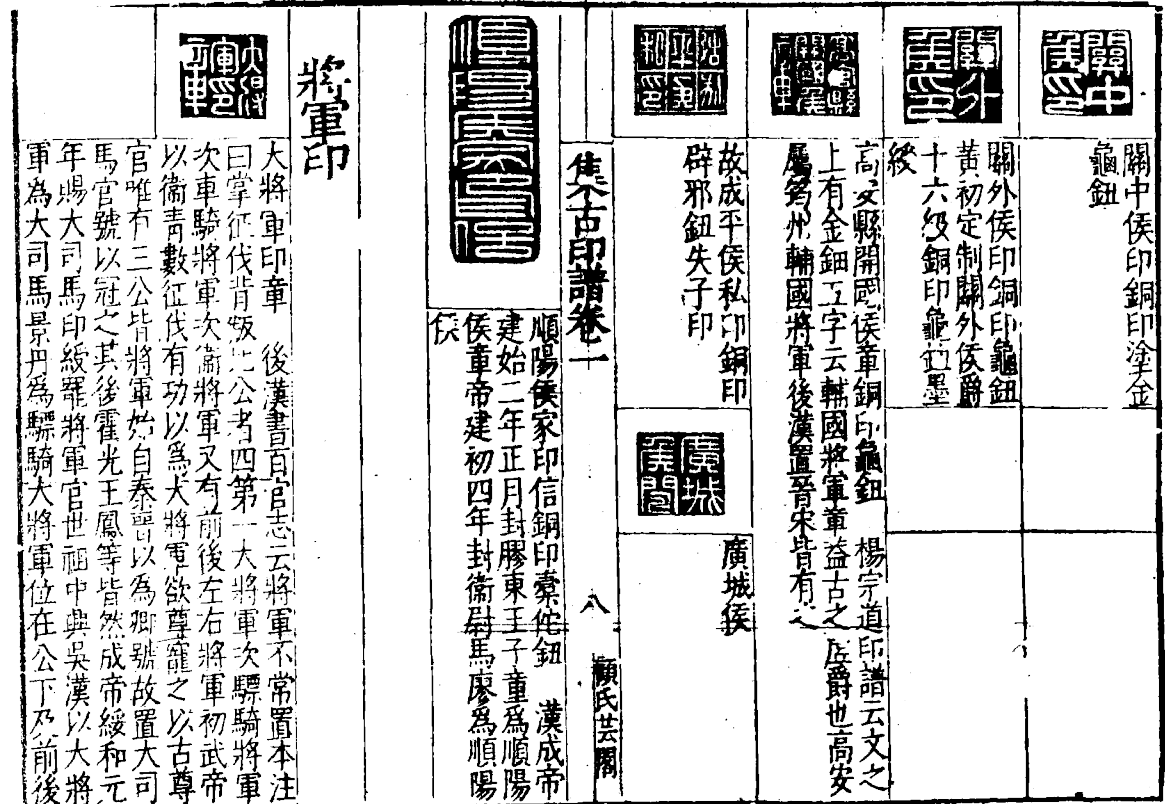 關中侯印
關中侯印銅印塗金
龜鈕
關外侯印
關外侯印銅印龜鈕
黃初定制關外侯爵
十六級銅印龜鈕墨
綬
高安縣開國侯章銅印龜鈕 楊宗道印譜云文之
上有金鈿工字云輔國將軍章益古之 爵也高安
屬筠州輔國將軍後漢置晉宋皆有之
故成平侯私印銅印
辟邪鈕失子印
廣城侯
集古印譜卷一
八
顧氏芸閣
順陽侯家印信銅印橐佗鈕 漢成帝
建始二年正月封膠東王子童為順陽
侯章帝建初四年封衞尉馬廖為順陽
侯
將軍印
大將軍印章 後漢書百官志云將軍不常置本注
曰掌征伐背叛比公者四第一大將軍次驃騎將軍
次車騎將軍次衞將軍又有前後左右將軍初武帝
以衞青數征伐有功以為大將軍欲尊寵之以古尊
官唯有三公皆將軍始自秦晉以為卿號故置大司
馬官號以冠之其後霍光王鳳等皆然成帝綏和元
年賜大司馬印綬罷將軍官世祖中興吳漢以大將
軍為大司馬景丹為驃騎大將軍位在公下及前後